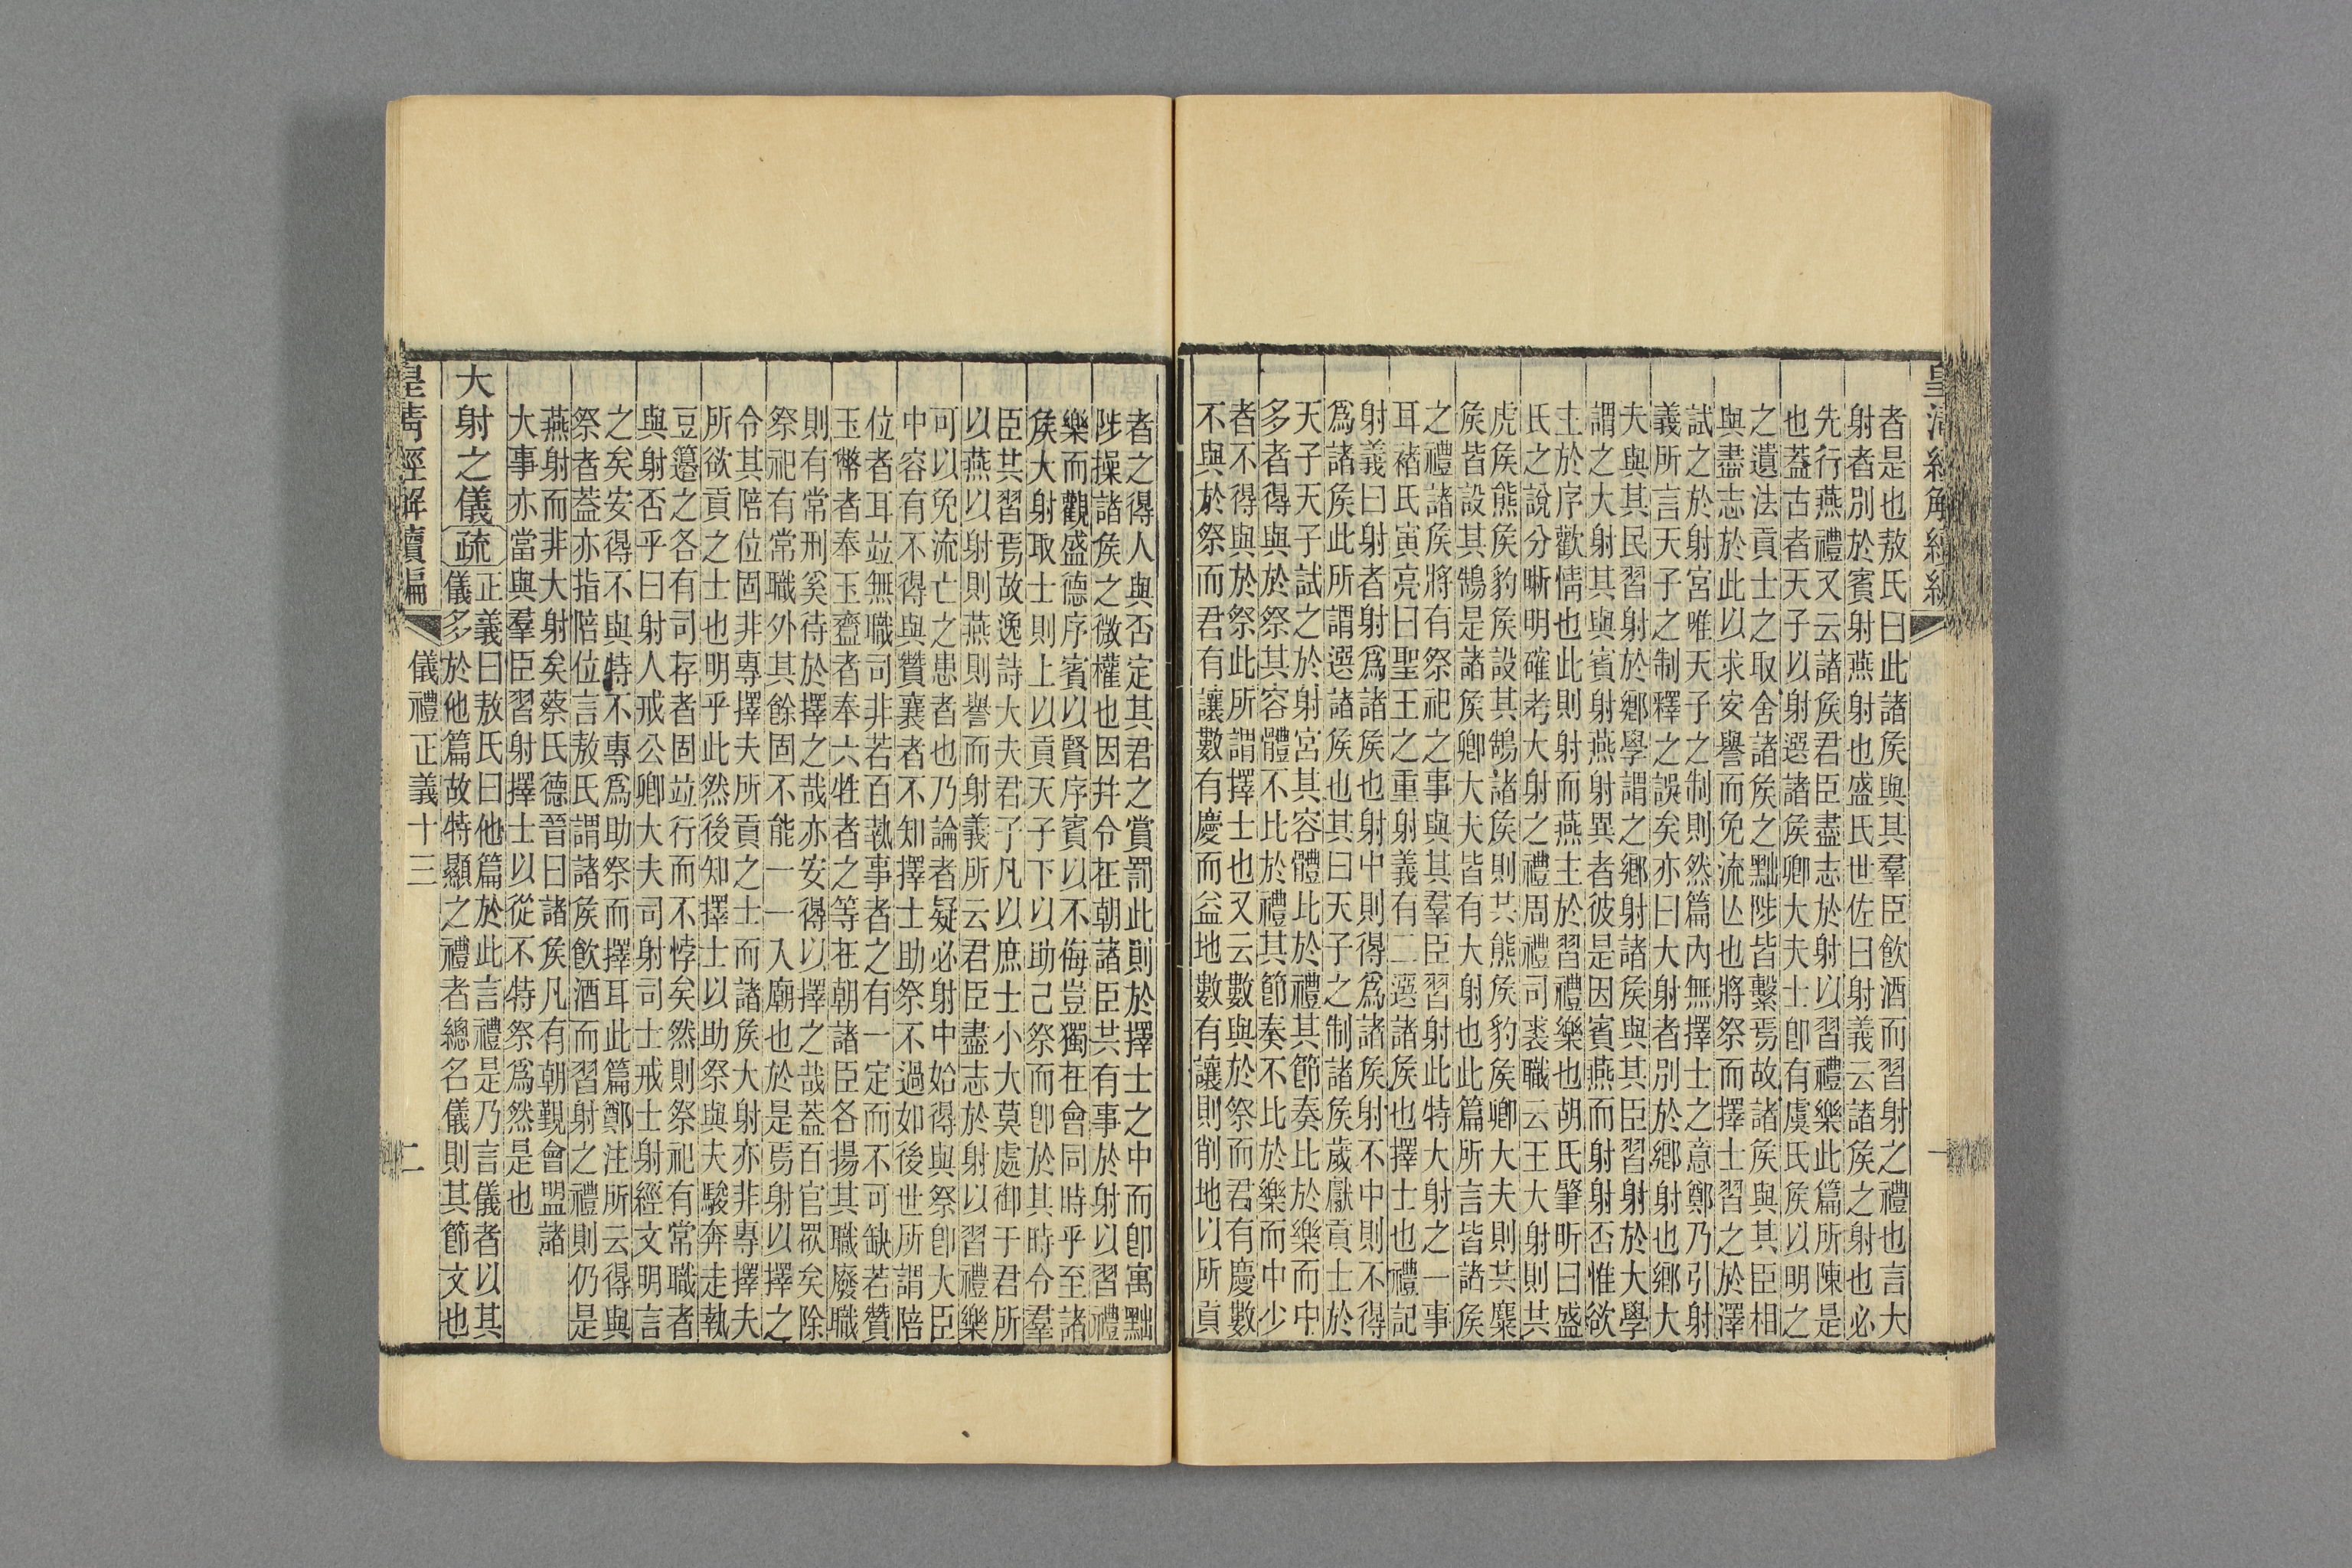 皇清經解續編
一
者是也敖氏曰此諸矦與其羣臣飲酒而習射之禮也言大
射者別於賓射燕射也盛氏世佐曰射義云諸矦之射也必
先行燕禮又云諸矦君臣盡志於射以習禮樂此篇所陳是
也葢古者天子以射選諸矦卿大夫士卽有虞氏矦以明之
之遺法貢士之取舍諸矦之黜陟皆繫焉故諸矦與其臣相
與盡志於此以求安譽而免流亾也將祭而擇士習之於澤
試之於射宮唯天子之制則然篇內無擇士之意鄭乃引射
義所言天子之制釋之誤矣亦曰大射者別於鄉射也鄉大
夫與其民習射於鄉學謂之鄉射諸矦與其臣習射於大學
謂之大射其與賓射燕射異者彼是因賓燕而射射否惟欲
主於序歡情也此則射而燕主於習禮樂也胡氏肇昕曰盛
氏之說分晰明確考大射之禮周禮司裘職云王大射則共
虎矦熊矦豹矦設其鵠諸矦則共熊矦豹矦卿大夫則共麋
矦皆設其鵠是諸矦卿大夫皆有大射也此篇所言皆諸矦
之禮諸矦將有祭祀之事與其羣臣習射此特大射之一事
耳褚氏寅亮曰聖王之重射義有二選諸矦也擇士也禮記
射義曰射者射爲諸矦也射中則得爲諸矦射不中則不得
爲諸矦此所謂選諸矦也其曰天子之制諸矦歲獻貢士於
天子天子試之於射宮其容體比於禮其節奏比於樂而中
多者得與於祭其容體不比於禮其節奏不比於樂而中少
者不得與於祭此所謂擇士也又云數與於祭而君有慶數
不與於祭而君有讓數有慶而益地數有讓則削地以所貢
者之得人與否定其君之賞罰此則於擇士之中而卽寓黜
陟操諸矦之微權也因幷令在朝諸臣共有事於射以習禮
樂而觀盛德序賓以賢序賓以不侮豈獨在會同時乎至諸
矦大射取士則上以貢天子下以助己祭而卽於其時令羣
臣共習焉故逸詩大夫君子凡以庶士小大莫處御于君所
以燕以射則燕則譽而射義所云君臣盡志於射以習禮樂
可以免流亡之患者也乃論者疑必射中始得與祭卽大臣
中容有不得與贊襄者不知擇士助祭不過如後世所謂陪
位者耳竝無職司非若百執事者之有一定而不可缺若贊
玉幣者奉玉齍者奉六牲者之等在朝諸臣各揚其職廢職
則有常刑奚待於擇之哉亦安得以擇之哉蓋百官眾矣除
祭祀有常職外其餘固不能一一入廟也於是焉射以擇之
令其陪位固非專擇夫所貢之士而諸矦大射亦非專擇夫
所欲貢之士也明乎此然後知擇士以助祭與夫駿奔走執
豆籩之各有司存者固竝行而不悖矣然則祭祀有常職者
與射否乎曰射人戒公卿大夫司射司士戒士射經文明言
之矣安得不與特不專爲助祭而擇耳此篇鄭注所云得與
祭者葢亦指陪位言敖氏謂諸矦飲酒而習射之禮則仍是
燕射而非大射矣蔡氏德晉曰諸矦凡有朝覲會盟諸
大事亦當與羣臣習射擇士以從不特祭爲然是也
大射之儀疏正義曰敖氏曰他篇於此言禮是乃言儀者以其
儀多於他篇故特顯之禮者總名儀則其節文也
皇清經解續編
儀禮正義十三
二